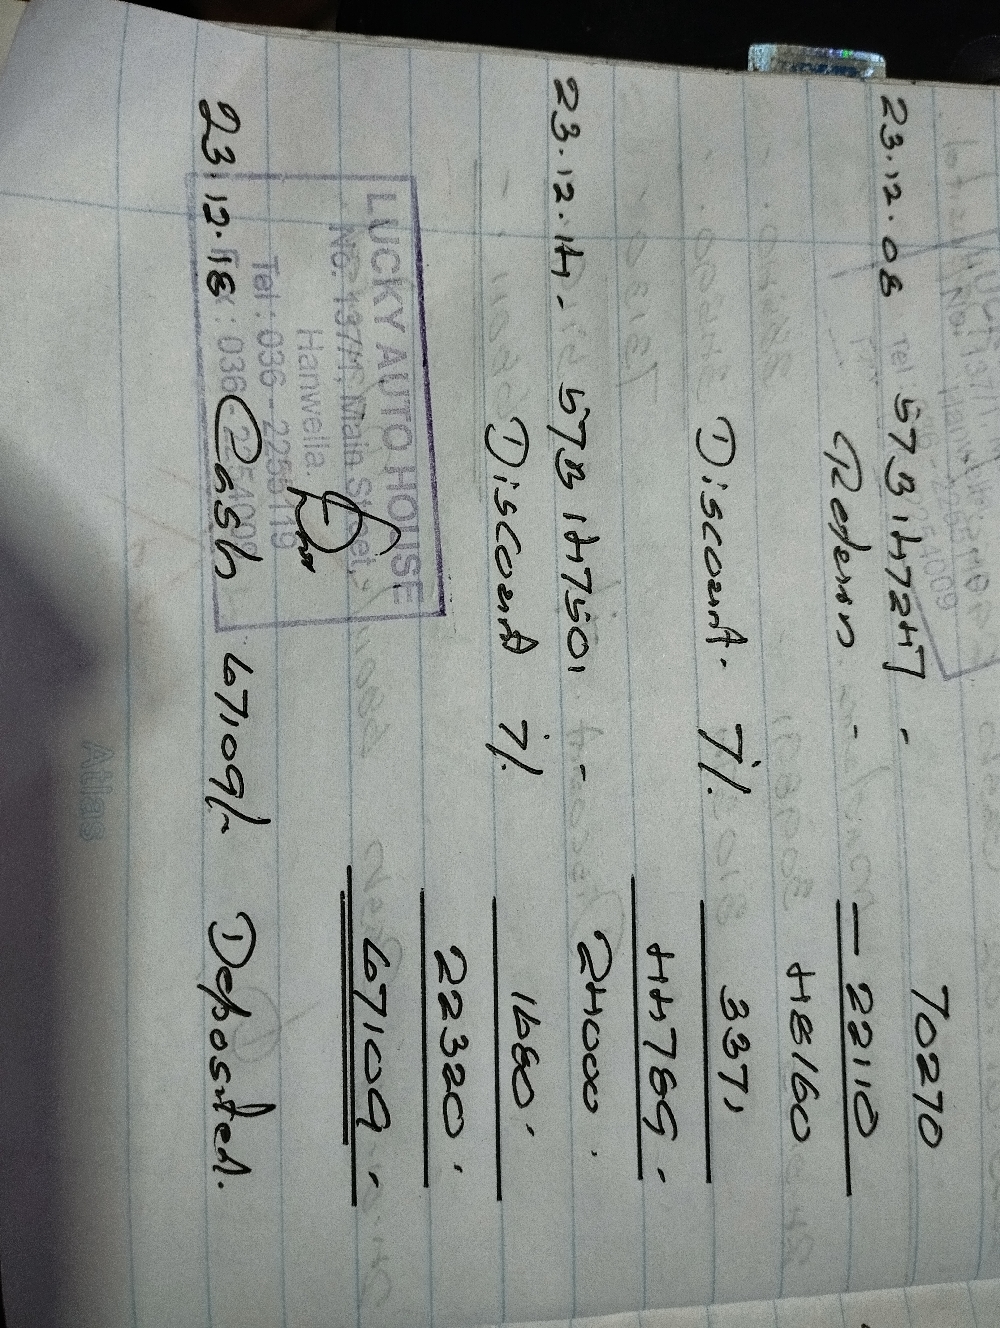 23.12.08 573147247 - 70270
Return - 22110
48160
Discount. 7% 3371
44789.
23.12.14. 573147501 - 24000.
Discount 7% 1680.
22320.
67109.
LUCKY AUTO HOUSE
No. 137/1, Main Street,
Hanwella
Tel: 036 - 2255119
23.12.18 Cash 67109/- Deposited.
Atlas